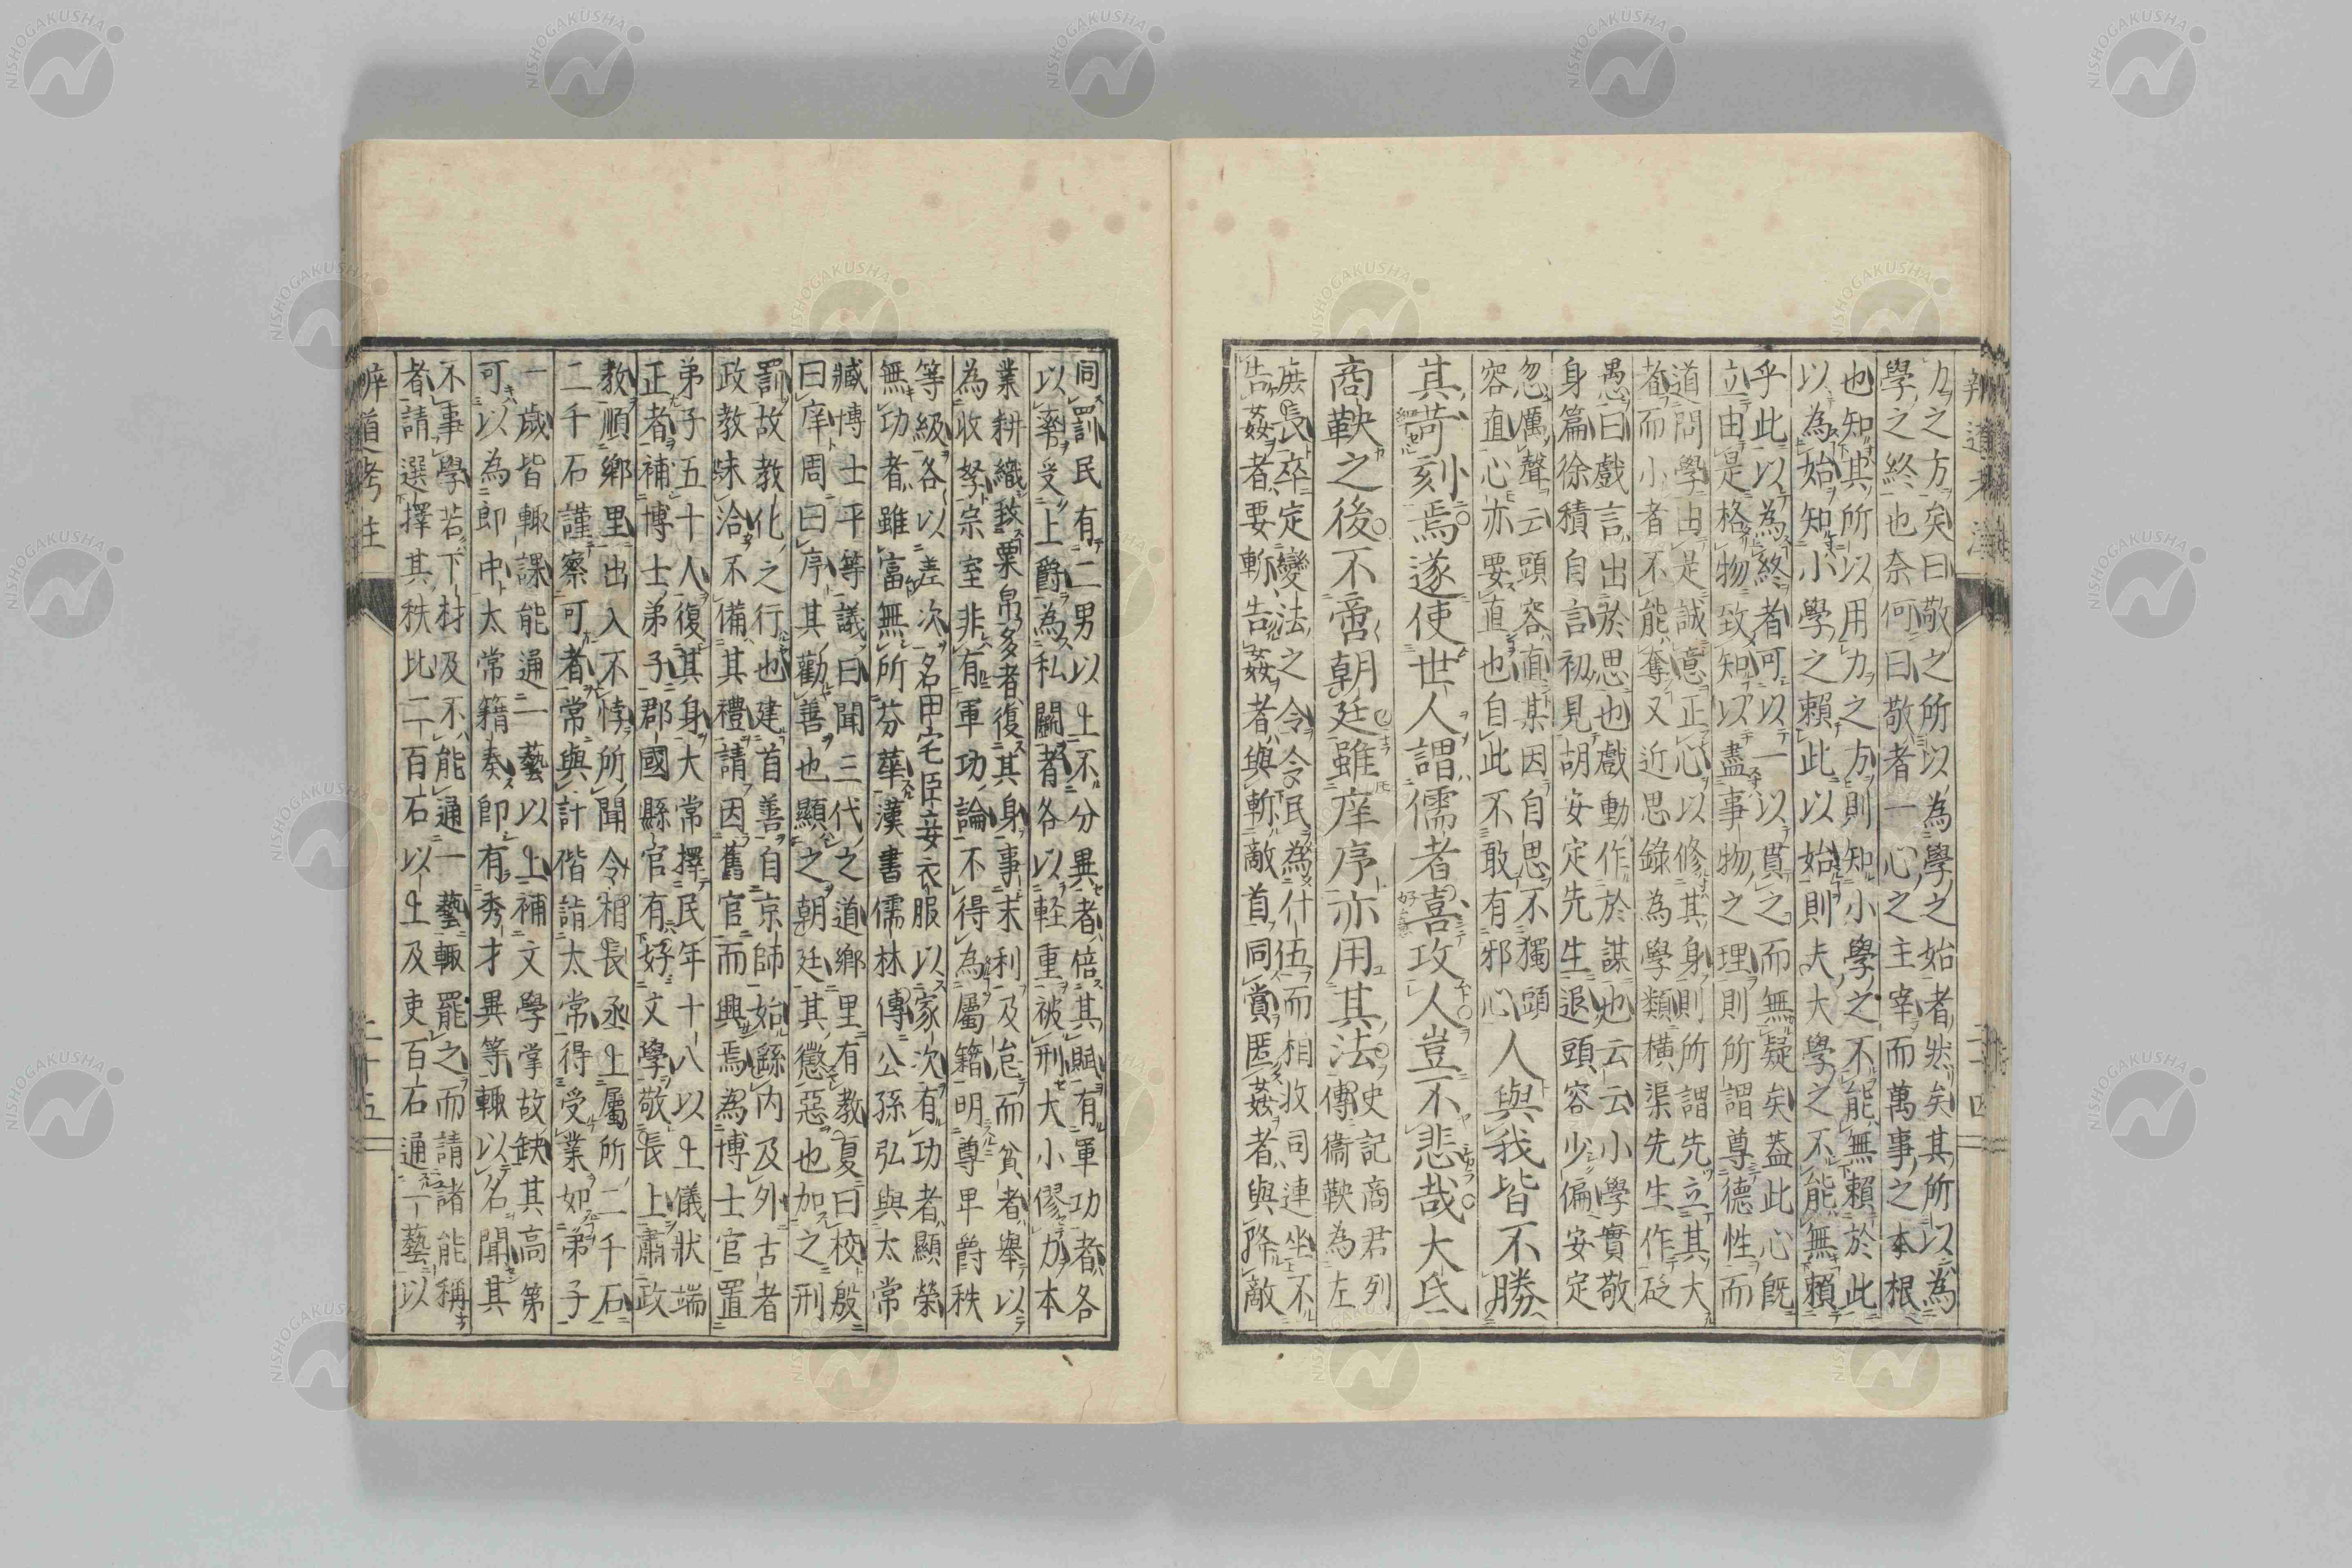 辨道考注 二十四
力之方矣曰敬之所以為學之始者然矣其所以為
學之終也奈何曰敬者一心之主宰而萬事之本根
也知其所以用力之方則知小學之不能無賴於此
以為始知小學之賴此以始則夫大學之不能無賴
乎此以為終者可以一以貫之而無疑矣蓋此心既
立由是格物致知以盡事物之理則所謂尊德性而
道問學由是誠意正心以修其身則所謂先立其大
者而小者不能奪又近思錄為學類橫渠先生作砭
愚曰戲言出於思也戲動作於謀也云云小學實敬
身篇徐積自言初見胡安定先生退頭容少偏安定
忽厲聲云頭容直某因自思不獨頭
容直心亦要直也自此不敢有邪心
人與我皆不勝
其苛刻焉遂使世人謂儒者喜攻人豈不悲哉大氐
商鞅之後不啻朝廷雖庠序亦用其法
史記商君列
傳衞鞅為左
庶長卒定變法之令令民為什伍而相收司連坐不
告姦者要斬告姦者與斬敵首同賞匿姦者與降敵
同罰民有二男以上不分異者倍其賦有軍功者各
以率受上爵為私鬭者各以輕重被刑大小僇力本
業耕織致粟帛多者復其身事末利及怠而貧者舉以
為收孥宗室非有軍功論不得為屬籍明尊卑爵秩
等級各以差次名田宅臣妾衣服以家次有功者顯榮
無功者雖富無所芬華漢書儒林傳公孫弘與太常
臧博士平等議曰聞三代之道鄉里有教夏曰校殷
曰庠周曰序其勸善也顯之朝廷其懲惡也加之刑
罰故教化之行也建首善自京師始繇内及外古者
政教未洽不備其禮請因舊官而興焉為博士官置
弟子五十人復其身大常擇民年十八以上儀狀端
正者補博士弟子郡國縣官有好文學敬長上肅政
教順鄉里出入不悖所聞令相長丞上屬所二千石
二千石謹察可者常與計偕詣太常得受業如弟子
一歲皆輒課能通一藝以上補文學掌故缺其高第
可以為郎中太常籍奏即有秀才異等輒以名聞其
不事學若下材及不能通一藝輒罷之而請諸能稱
者請選擇其秩比二百石以上及吏百石通一藝以
辨道考注 二十五